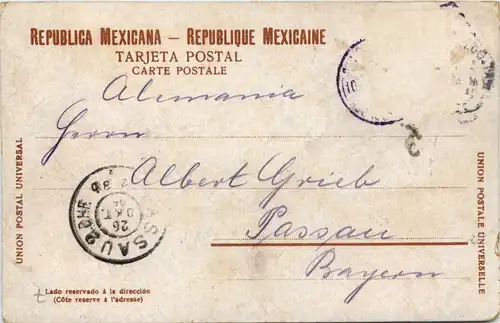 REPUBLICA MEXICANA — REPUBLIQUE MEXICAINE
TARJETA POSTAL
CARTE POSTALE
Alemania
Herrn
Albert Grieb
Passau
Bayern
UNION POSTAL UNIVERSAL
UNION POSTALE UNIVERSELLE
PASSAU 2 BHF.
26
OKT.
Lado reservado á la dirección
(Côte reserve à l'adresse)